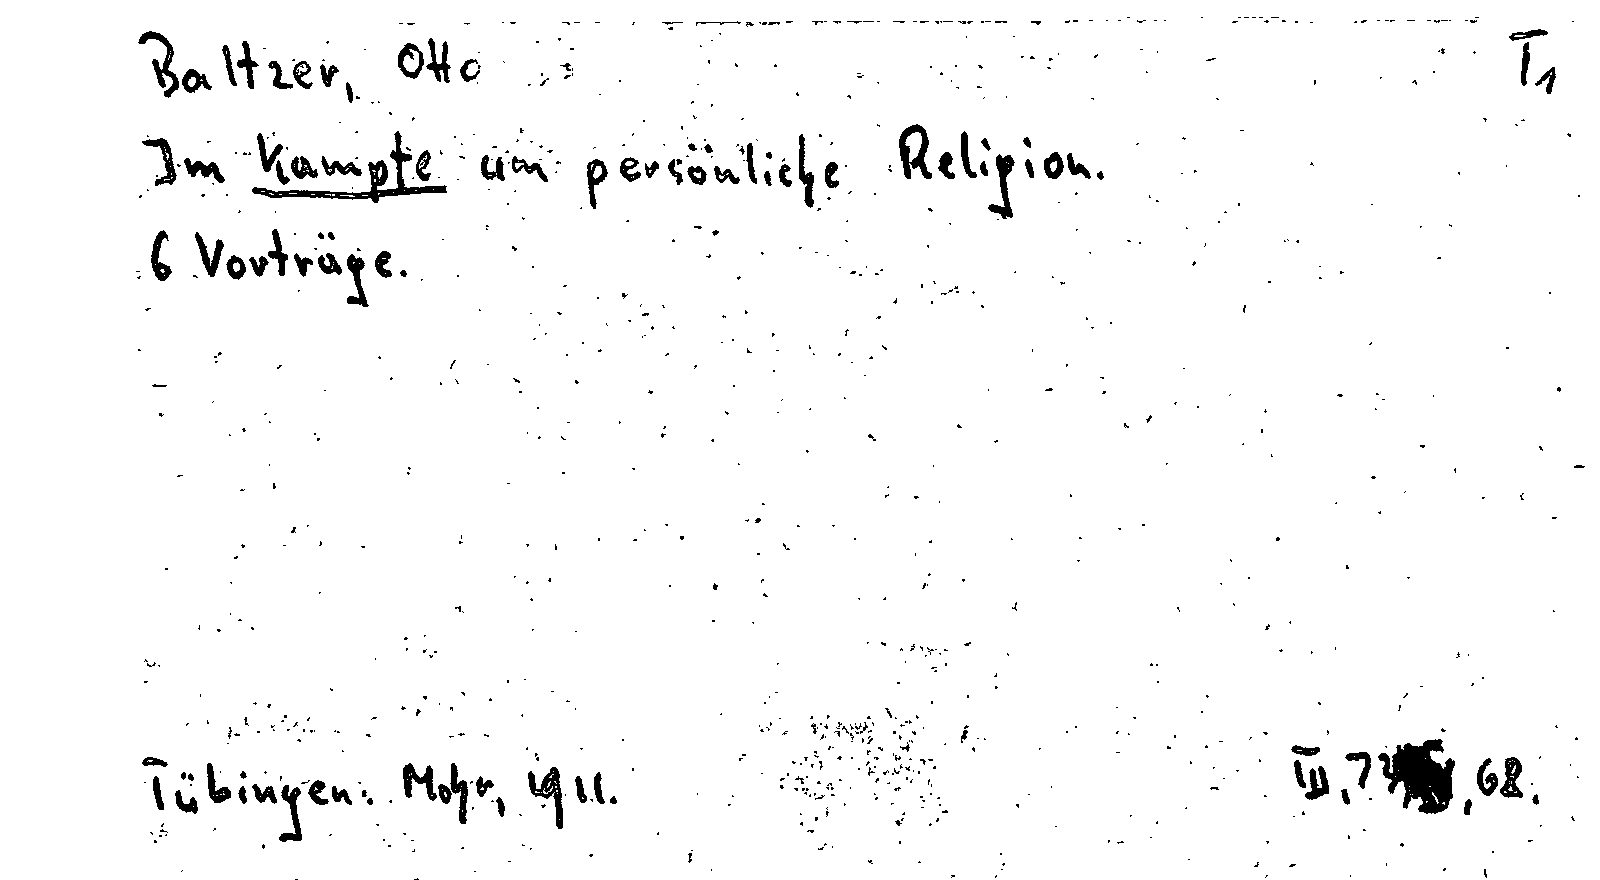 Baltzer, Otto T1
Im Kampfe um persönliche Religion.
6 Vorträge.
Tübingen: Mohr, 1911. III, 73, 68.